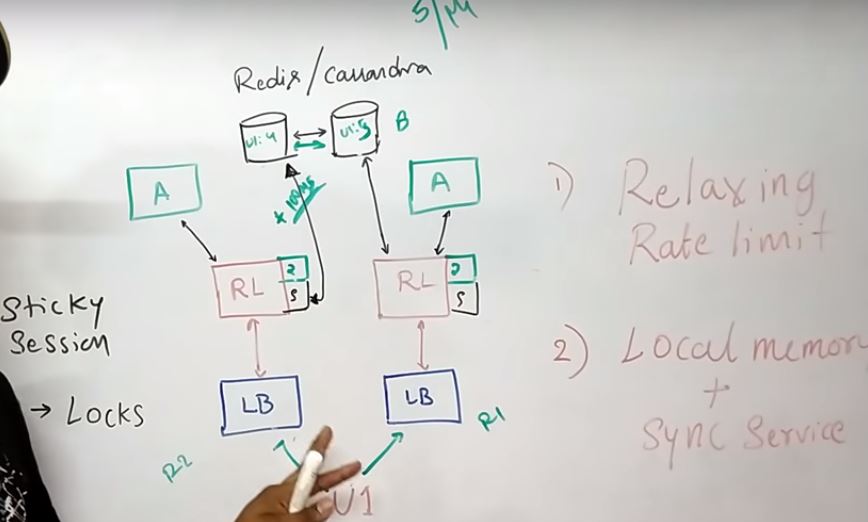 5/M
Redis/Cassandra
U1:4
U1:5
B
A
A
* 100MS
RL
2
S
RL
2
S
Sticky
Session
→ Locks
LB
LB
R2
R1
U1
1) Relaxing
Rate limit
2) Local memor
+
Sync Service